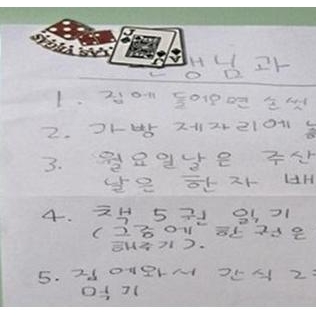 선생님과
1. 집에 들어오면 손씻
2. 가방 제자리에
3. 월요일날은 주산
날은 한자 배
4. 책 5권 읽기
(그중에 한권은
해주기).
5. 집에와서 간식 2
먹기